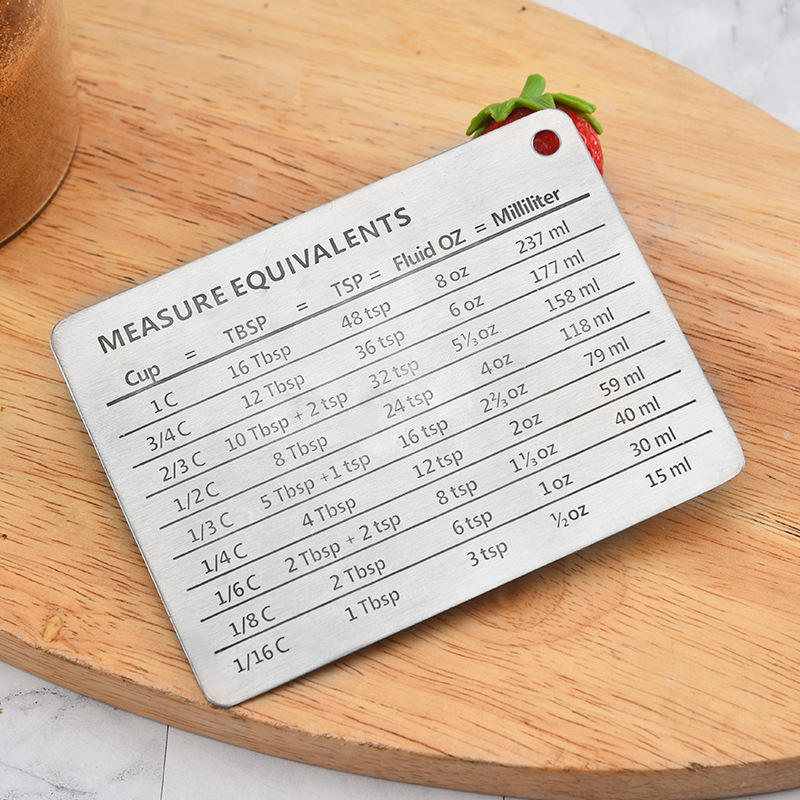 MEASURE EQUIVALENTS
Cup = TBSP = TSP = Fluid OZ = Milliliter
1 C 16 Tbsp 48 tsp 8 oz 237 ml
3/4 C 12 Tbsp 36 tsp 6 oz 177 ml
2/3 C 10 Tbsp + 2 tsp 32 tsp 5⅓ oz 158 ml
1/2 C 8 Tbsp 24 tsp 4 oz 118 ml
1/3 C 5 Tbsp +1 tsp 16 tsp 2⅔ oz 79 ml
1/4 C 4 Tbsp 12 tsp 2 oz 59 ml
1/6 C 2 Tbsp + 2 tsp 8 tsp 1⅓ oz 40 ml
1/8 C 2 Tbsp 6 tsp 1 oz 30 ml
1/16 C 1 Tbsp 3 tsp ½ oz 15 ml